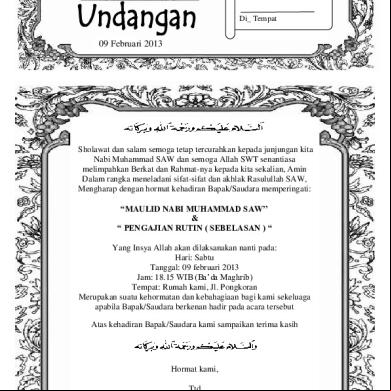 Undangan
09 Februari 2013
Di_ Tempat
السلام عليكم ورحمة الله وبركاته
Sholawat dan salam semoga tetap tercurahkan kepada junjungan kita
Nabi Muhammad SAW dan semoga Allah SWT senantiasa
melimpahkan Berkat dan Rahmat-nya kepada kita sekalian, Amin
Dalam rangka meneladani sifat-sifat dan akhlak Rasulullah SAW,
Mengharap dengan hormat kehadiran Bapak/Saudara memperingati:
“MAULID NABI MUHAMMAD SAW”
&
“ PENGAJIAN RUTIN ( SEBELASAN ) “
Yang Insya Allah akan dilaksanakan nanti pada:
Hari: Sabtu
Tanggal: 09 februari 2013
Jam: 18.15 WIB (Ba’da Maghrib)
Tempat: Rumah kami, Jl. Pongkoran
Merupakan suatu kehormatan dan kebahagiaan bagi kami sekeluarga
apabila Bapak/Saudara berkenan hadir pada acara tersebut
Atas kehadiran Bapak/Saudara kami sampaikan terima kasih
والسلام عليكم ورحمة الله وبركاته
Hormat kami,
Ttd